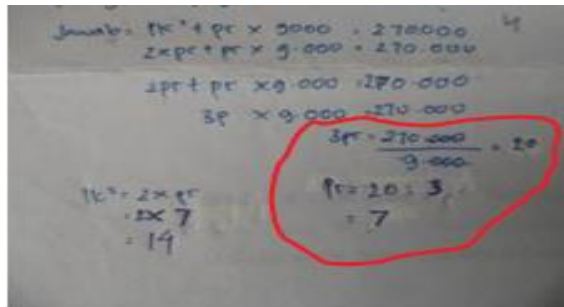 Jawab = lk² + pr × 9000 = 270.000
2×pr + pr × 9.000 = 270.000
2pr + pr × 9.000 = 270.000
3p × 9.000 = 270.000
3pr = 270.000 / 9.000 = 20
pr = 20 : 3
= 7
lk² = 2 × pr
= 2 × 7
= 14